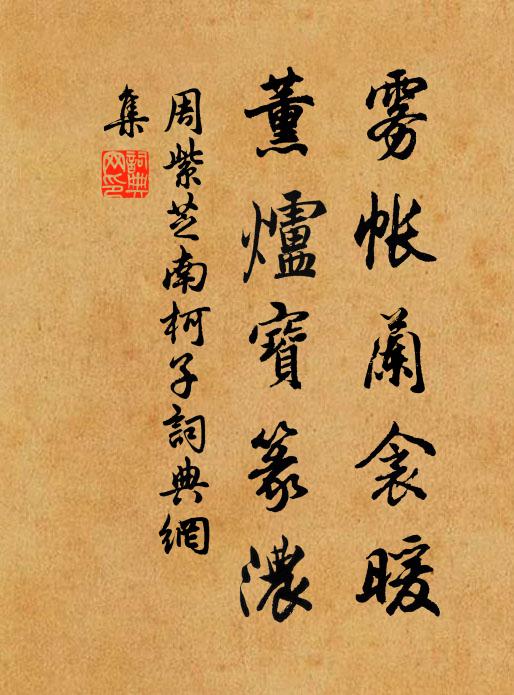 雾帐蘭衾暖
薰爐寶篆濃
周紫芝南柯子詞典網
集
詞典
网印